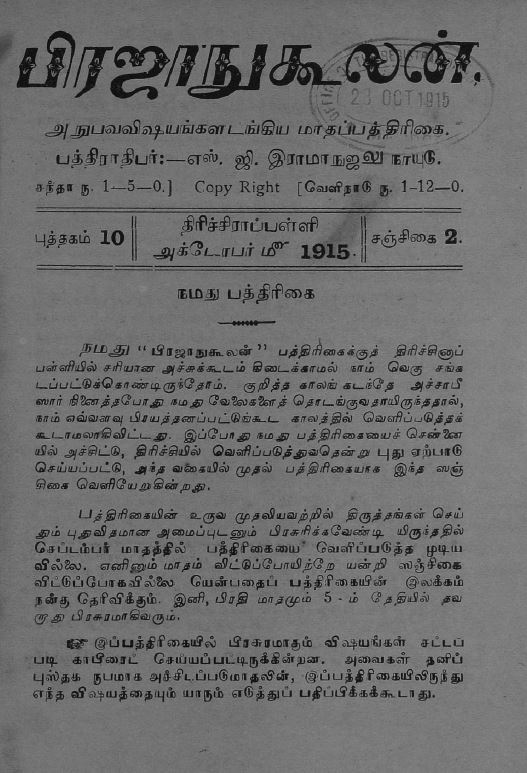 பிரஜாநுகூலன்.
23 OCT 1915
அநுபவவிஷயங்களடங்கிய மாதப்பத்திரிகை.
பத்திராதிபர்:—எஸ். ஜி. இராமாநுஜலு நாயுடு.
சந்தா ரூ. 1–5–0.] Copy Right [வெளிநாடு ரூ. 1–12–0.
புத்தகம் 10
திரிச்சிராப்பள்ளி
அக்டோபர் மீ 1915.
சஞ்சிகை 2.
நமது பத்திரிகை
நமது "பிரஜாநுகூலன்" பத்திரிகைக்குத் திரிச்சினாப்
பள்ளியில் சரியான அச்சுக்கூடம் கிடைக்காமல் நாம் வெகு சங்க
டப்பட்டுக்கொண்டிருந்தோம். குறித்த காலங் கடந்தே அச்சாபீ
ஸார் நினைத்தபோது நமது வேலைகளைத் தொடங்குவதாயிருந்ததால்,
நாம் எவ்வளவு பிரயத்தனப்பட்டுங்கூட காலத்தில் வெளிப்படுத்தக்
கூடாமலாகிவிட்டது. இப்போது நமது பத்திரிகையைச் சென்னை
யில் அச்சிட்டு, திரிச்சியில் வெளிப்படுத்துவதென்று புது ஏற்பாடு
செய்யப்பட்டு, அந்த வகையில் முதல் பத்திரிகையாக இந்த ஸஞ்
சிகை வெளியேறுகின்றது.
பத்திரிகையின் உருவ முதலியவற்றில் திருத்தங்கள் செய்
தும் புதுவிதமான அமைப்புடனும் பிரசுரிக்கவேண்டி யிருந்ததில்
செப்டம்பர் மாதத்தில் பத்திரிகையை வெளிப்படுத்த முடிய
வில்லை. எனினும் மாதம் விட்டுப்போயிற்றே யன்றி ஸஞ்சிகை
விட்டுப்போகவில்லை யென்பதைப் பத்திரிகையின் இலக்கம்
நன்கு தெரிவிக்கும். இனி, பிரதி மாதமும் 5 - ம் தேதியில் தவ
றாது பிரசுரமாகிவரும்.
☞ இப்பத்திரிகையில் பிரசுரமாதும் விஷயங்கள் சட்டப்
படி காபிரைட் செய்யப்பட்டிருக்கின்றன. அவைகள் தனிப்
புஸ்தக ரூபமாக அச்சிடப்படுமாதலின், இப்பத்திரிகையிலிருந்து
எந்த விஷயத்தையும் யாரும் எடுத்துப் பதிப்பிக்கக்கூடாது.